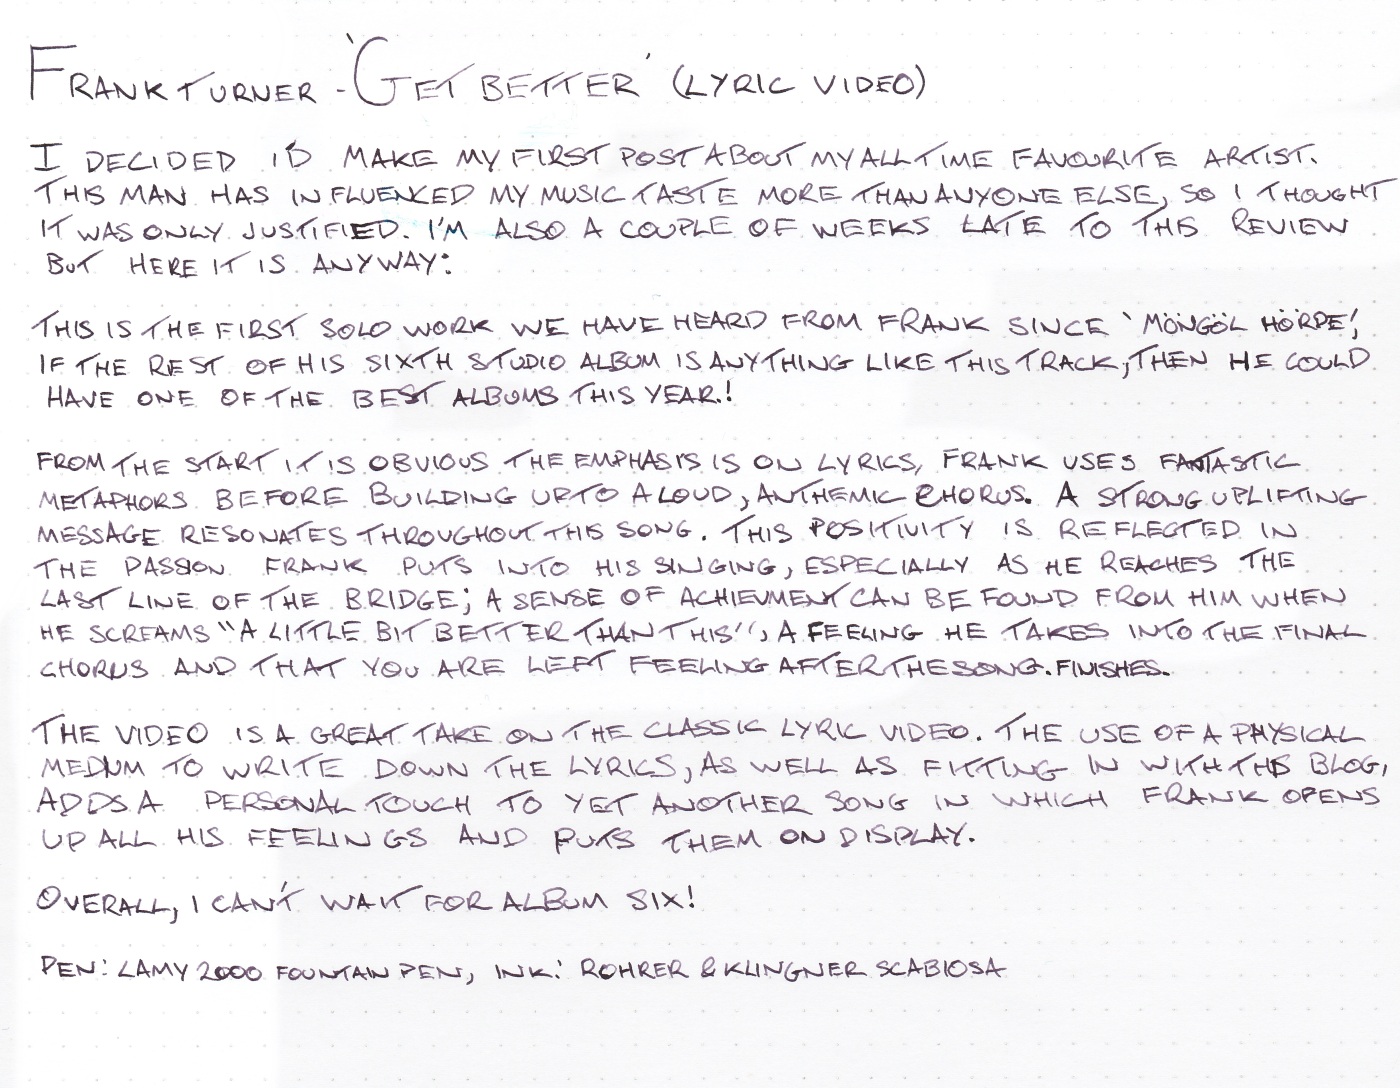 FRANK TURNER - 'GET BETTER' (LYRIC VIDEO)
I DECIDED I'D MAKE MY FIRST POST ABOUT MY ALL TIME FAVOURITE ARTIST.
THIS MAN HAS INFLUENCED MY MUSIC TASTE MORE THAN ANYONE ELSE, SO I THOUGHT
IT WAS ONLY JUSTIFIED. I'M ALSO A COUPLE OF WEEKS LATE TO THIS REVIEW
BUT HERE IT IS ANYWAY:
THIS IS THE FIRST SOLO WORK WE HAVE HEARD FROM FRANK SINCE 'MÖNGÖL HÖRDE',
IF THE REST OF HIS SIXTH STUDIO ALBUM IS ANYTHING LIKE THIS TRACK, THEN HE COULD
HAVE ONE OF THE BEST ALBUMS THIS YEAR.!
FROM THE START IT IS OBVIOUS THE EMPHASIS IS ON LYRICS, FRANK USES FANTASTIC
METAPHORS BEFORE BUILDING UP TO A LOUD, ANTHEMIC CHORUS. A STRONG UPLIFTING
MESSAGE RESONATES THROUGHOUT THIS SONG. THIS POSITIVITY IS REFLECTED IN
THE PASSION FRANK PUTS INTO HIS SINGING, ESPECIALLY AS HE REACHES THE
LAST LINE OF THE BRIDGE; A SENSE OF ACHIEVMENT CAN BE FOUND FROM HIM WHEN
HE SCREAMS "A LITTLE BIT BETTER THAN THIS", A FEELING HE TAKES INTO THE FINAL
CHORUS AND THAT YOU ARE LEFT FEELING AFTER THE SONG. FINISHES.
THE VIDEO IS A GREAT TAKE ON THE CLASSIC LYRIC VIDEO. THE USE OF A PHYSICAL
MEDIUM TO WRITE DOWN THE LYRICS, AS WELL AS FITTING IN WITH THIS BLOG,
ADDS A PERSONAL TOUCH TO YET ANOTHER SONG IN WHICH FRANK OPENS
UP ALL HIS FEELINGS AND PUTS THEM ON DISPLAY.
OVERALL, I CAN'T WAIT FOR ALBUM SIX!
PEN: LAMY 2000 FOUNTAIN PEN, INK: ROHRER & KLINGNER SCABIOSA